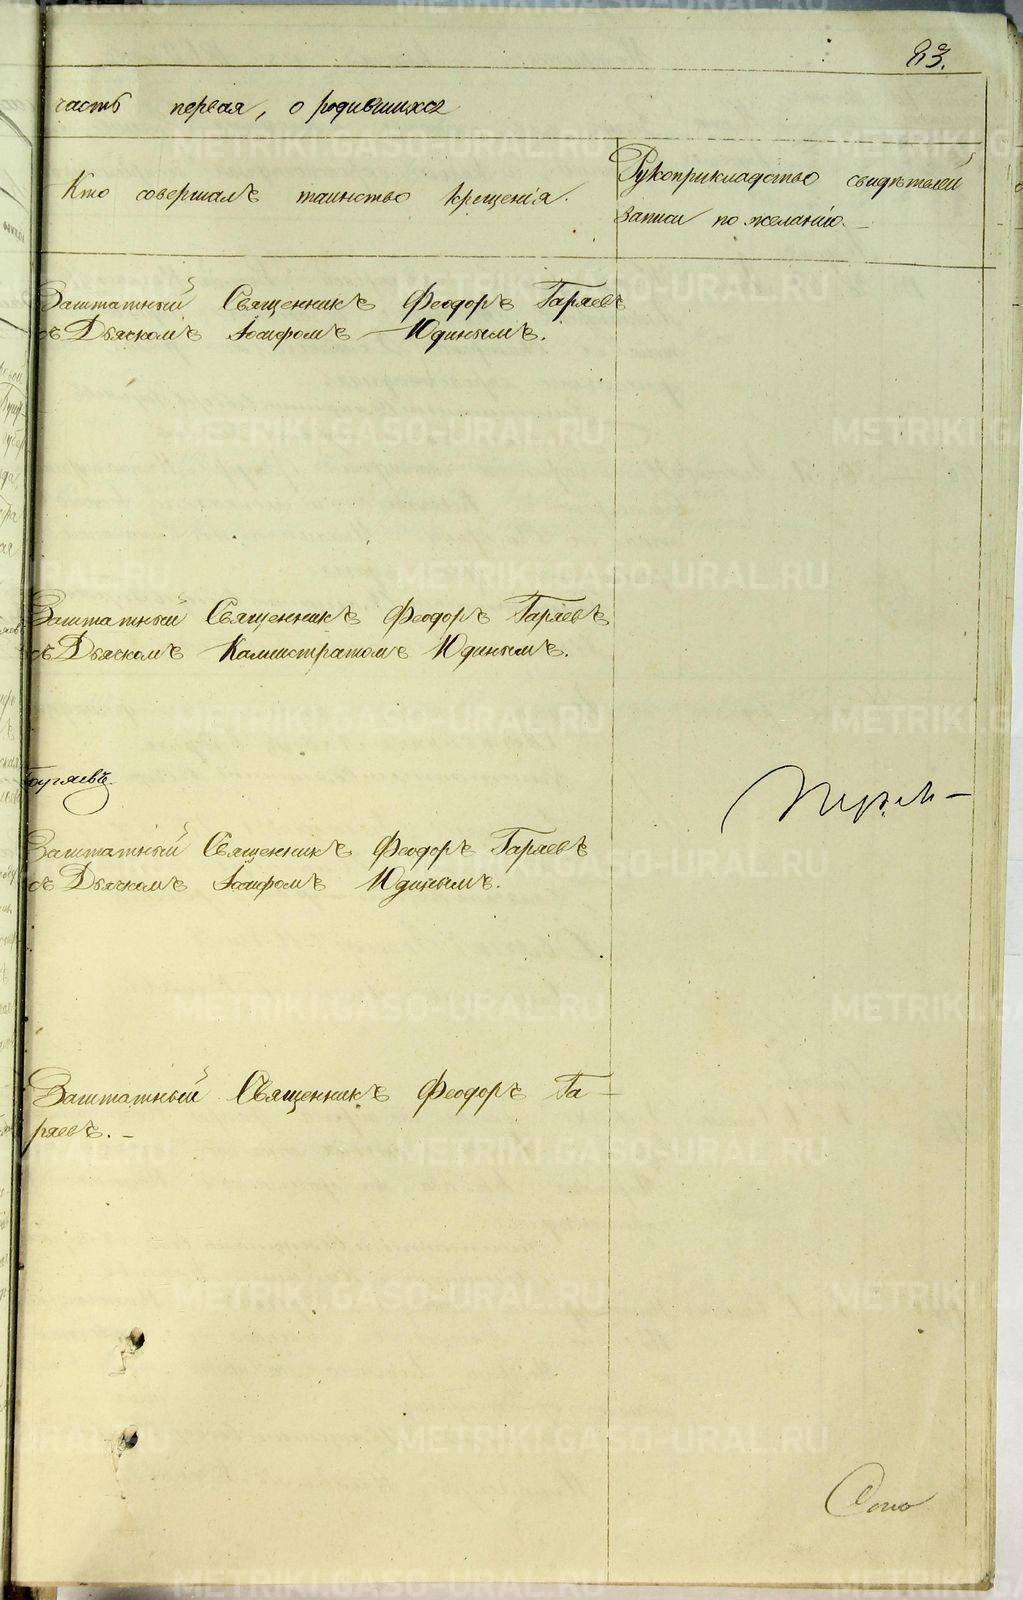 83.
часть первая, о родившихся
Кто совершалъ таинство крещенія.
Рукоприкладство свидѣтелей
записи по желанію.
Заштатный Священникъ Феодоръ Гаряевъ
съ Дьячкомъ Іосифомъ Юдинымъ.
Заштатный Священникъ Феодоръ Гаряевъ
съ Дьячкомъ Каллистратомъ Юдинымъ.
Заштатный Священникъ Феодоръ Гаряевъ
съ Дьячкомъ Іосифомъ Юдинымъ.
Заштатный Священникъ Феодоръ Га-
ряевъ.
METRIKI.GASO-URAL.RU